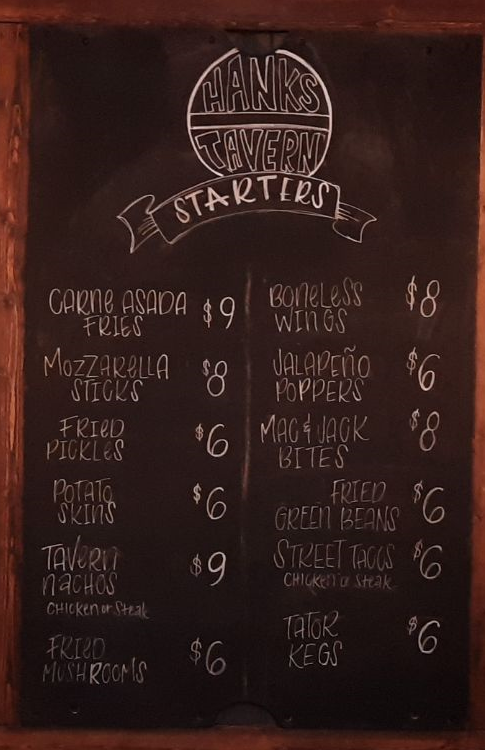 HANKS
TAVERN
STARTERS
CARNE ASADA
FRIES
$9
MOZZARELLA
STICKS
$8
FRIED
PICKLES
$6
POTATO
SKINS
$6
TAVERN
NACHOS
CHICKEN or Steak
$9
FRIED
MUSHROOMS
$6
BONELESS
WINGS
$8
JALAPEÑO
POPPERS
$6
MAC & JACK
BITES
$8
FRIED
GREEN BEANS
$6
STREET TACOS
CHICKEN or Steak
$6
TATOR
KEGS
$6